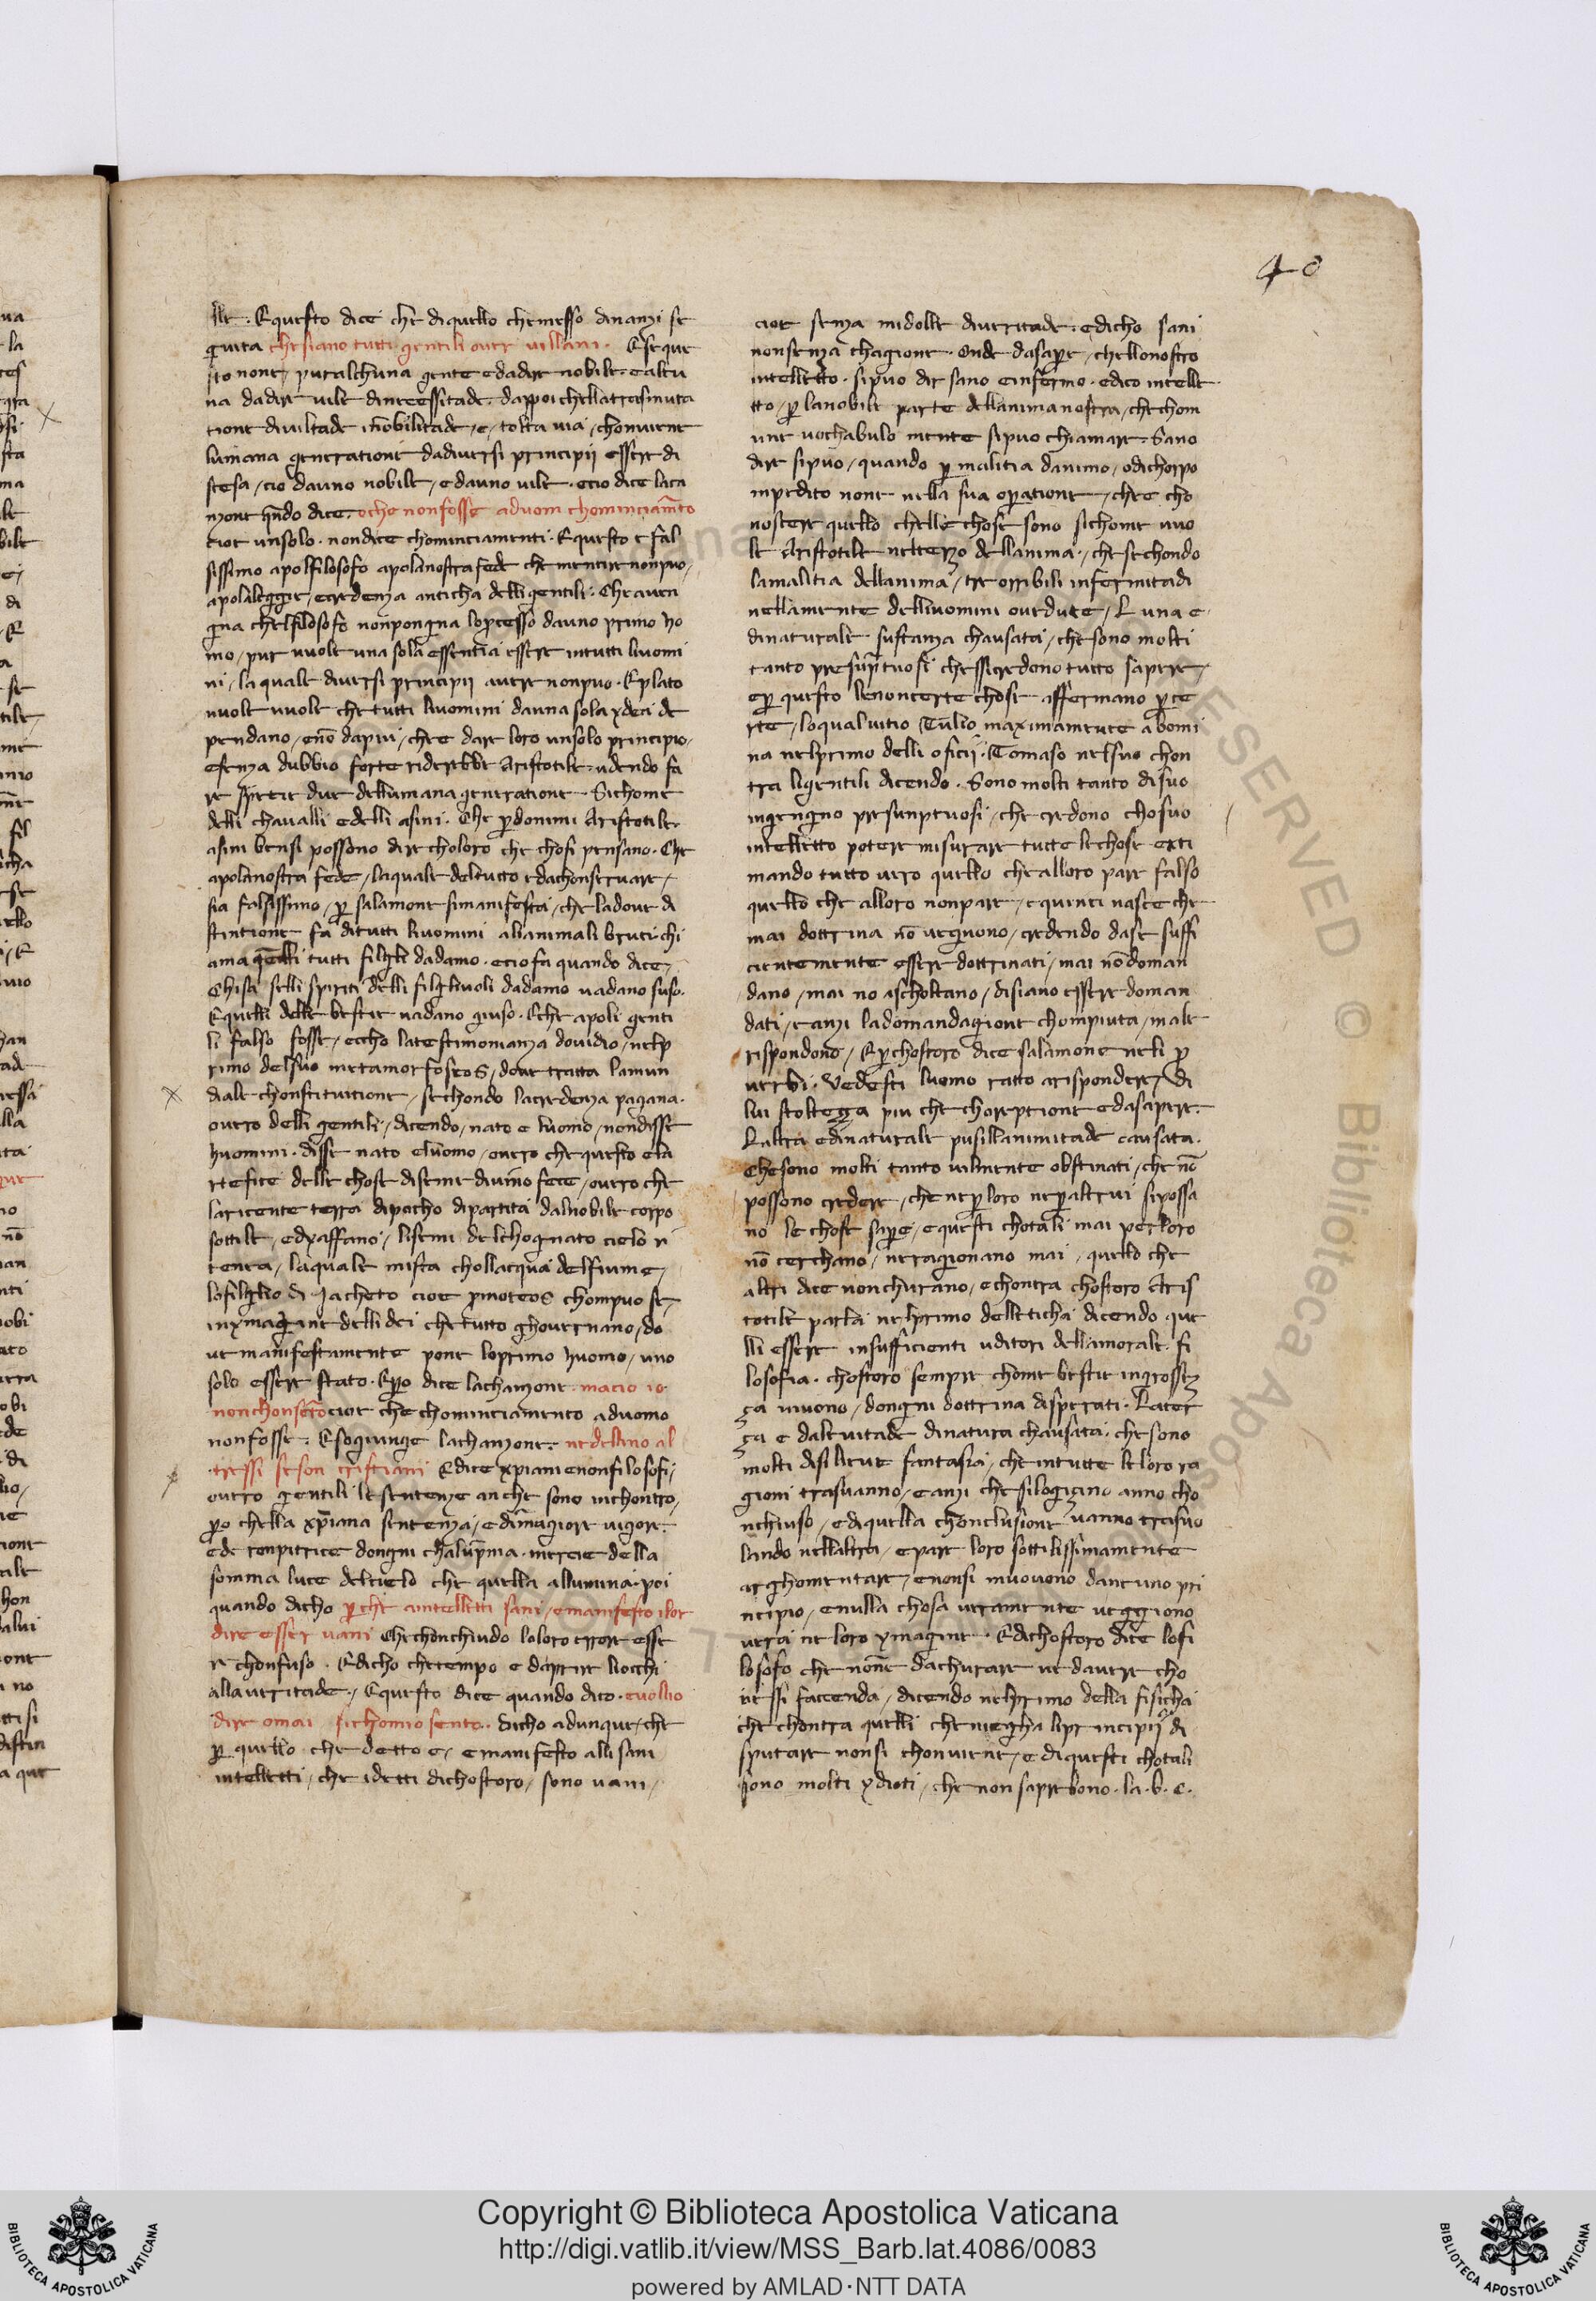 40
lle. E questo dice che di quello che messo dinanzi se
guita che siano tutti gentili over villani. E se que
sto none / pur alchuna gente e dadire nobile. e alcu
na dadire vile di necessitade. dappoi chella trasmuta
tione di viltade i nobilitade / e / tolta via / chonviene
lumana generatione dadiversi principij essere di
scesa / cio dauno nobile / e dauno vile. e cio dice la ca
nzone qñdo dice. o che non fosse ad uom chominciam̃to
cioe unsolo. nondice chominciamenti. E questo e fal
sissimo apo lfilosofo apo la nostra fede che mentire non puo /
apo la leggie / e credenza anticha delli gentili. Che aven
gna chel filosofo non pongna lo pcesso dauno primo ho
mo / pur vuole una sola essentia essere in tutti li uomi
ni / la quale diversi principij avere non puo. E plato
vuole vuole che tutti li uomini da una sola ydeci de
pendano / e nõ dapiu / che e dare loro unsolo principio /
e senza dubbio forte riderebbe Aristotile. udendo fa
re spetie due dellumana generatione. Sichome
delli chavalli e delli asini. Che pdonimi Aristotile
asini bensi possono dire choloro che chosi pensano. Che
apo la nostra fede / la quale del tutto e dachonservare /
sia falsissimo / p salamone si manifesta / che la dove di
stintione fa di tutti li uomini alianimali bruti chi
ama quelli tutti figli dadamo. e cio fa quando dice /
Chi sa selli spiriti delli figliuoli dadamo vadano suso.
E quelli delle bestie vadano giuso. E che apo li genti
li falso fosse / eccho la testimonianza dovidio / nel p
rimo del suo metamorfoseos / dove tratta la mun
diale chonstituitione / sechondo la credenza pagana.
overo delli gentili / dicendo / nato e luomo / non disse
huomini. disse nato e luomo / overo che questo e la
rtefice delle chose di seme divino fece / overo che
la ricente terra di pocho dipartita dal nobile corpo
sottile / e dyaffano / li semi del chognato cielo ri
tenea / la quale mista chollacqua del fiume /
lo figlio di Jacheto cioe pmoteos chompuose /
in ymagine delli dei che tutto ghovernano / do
ve manifestamente pone lo primo huomo / uno
solo essere stato. E po dice la chanzone. ma cio io
non chonsẽto cioe che chominciamento ad uomo
non fosse. E sogiunge la chanzone. ne dellino al
tressi se son cristiani E dice xpiani e non filosofi /
overo gentili le sentenze anche sono inchontro /
po chella xp̃iana sentenza / e di magiore vigore.
ed e rompitrice dongni chalup̃nia. merzie della
somma luce del cielo che quella allumina. poi
quando dicho p che a intelletti sani / e manifesto i lor
dire esser vani Che chonchiudo lo loro errore esse
re chonfuso. E dicho che tempo e daprire li occhi
alla veritade. / E questo dice quando dico. e vollio
dire omai / sichomio sento. Dicho adunque / che
p quello che detto e / e manifesto alli sani
intelletti / che i detti dichostoro / sono vani /
cioe senza midolle di veritade. e dicho sani
non senza chagione. Onde da sape / che lo nostro
intelletto. si puo dir sano e infermo. e dico intelle
tto / p la nobile parte dellanima nostra / che chom
une vochabulo mente si puo chiamare. Sano
dire si puo / quando p malitia danimo / o di chorpo
inpedito none nella sua opatione / che e cho
noscere quello chelle chose sono sichome vuo
le Aristotile nel terzo dellanima / che sechondo
la malitia dellanima / tre orribili infermitadi
nella mente delli uomini o vedute / L una e
di naturale sustanza chausata / che sono molti
tanto presup̃tuosi che si credono tutto sapere /
e p questo le non certe chose affermano p ce
rte / lo qual vitio Tulio maximamente abomi
na nel primo delli oficij. Tomaso nel suo chon
tra li gentili dicendo. Sono molti tanto di suo
ingengno presunptuosi / che credono cho suo
intelletto potere misurare tutte le chose exti
mando tutto vero quello che alloro pare falso
quello che alloro non pare / e quinci nasce che
mai dottrina nõ vegnono / credendo da se suffi
cientemente essere dottrinati / mai nõ doman
dano / mai no ascholtano / disiano essere doman
dati / e anzi la domandagione chompiuta / male
rispondono / E p chostoro dice salamone neli p
verbi. Vedesti luomo ratto arispondere / di
lui stoltezza piu che chorreptione e dasapere.
L altra e di naturale pusillanimitade causata.
Che sono molti tanto vilmente obstinati / che nõ
possono credere / che ne p loro ne p altrui si possa
no le chose sape / e questi chotali mai per loro
nõ cerchano / ne ragionano mai / quello che
altri dice non churano / e chontra chostoro Aris
totile parla nel primo delletticha dicendo que
lli essere insufficienti uditori della morale fi
losofia. chostoro sempre chome bestie in grossez
za vivono / dongni dottrina disperati. La ter
za e da levitade di natura chausata. che sono
molti di si lieve fantasia / che in tutte le loro ra
gioni trasvanno / e anzi che silogizino anno cho
nchiuso / e di quella chonclusione vanno trasvo
lando nellaltra / e pare loro sottilissimamente
arghomentare / e non si muovono da neuno pri
ncipio / e nulla chosa veramente veggiono
vera ne loro ymagine. E dichostoro dice lo fi
losofo che none dachurare ne davere cho
n essi faccenda / dicendo nel primo della fisicha
che chontra quelli che niegha li principij di
sputare non si chonviene / e di questi chotali
sono molti ydioti / che non saprebono. la. b. c.
Copyright © Biblioteca Apostolica Vaticana
http://digi.vatlib.it/view/MSS_Barb.lat.4086/0083
powered by AMLAD·NTT DATA
BIBLIOTECA APOSTOLICA VATICANA
BIBLIOTECA APOSTOLICA VATICANA